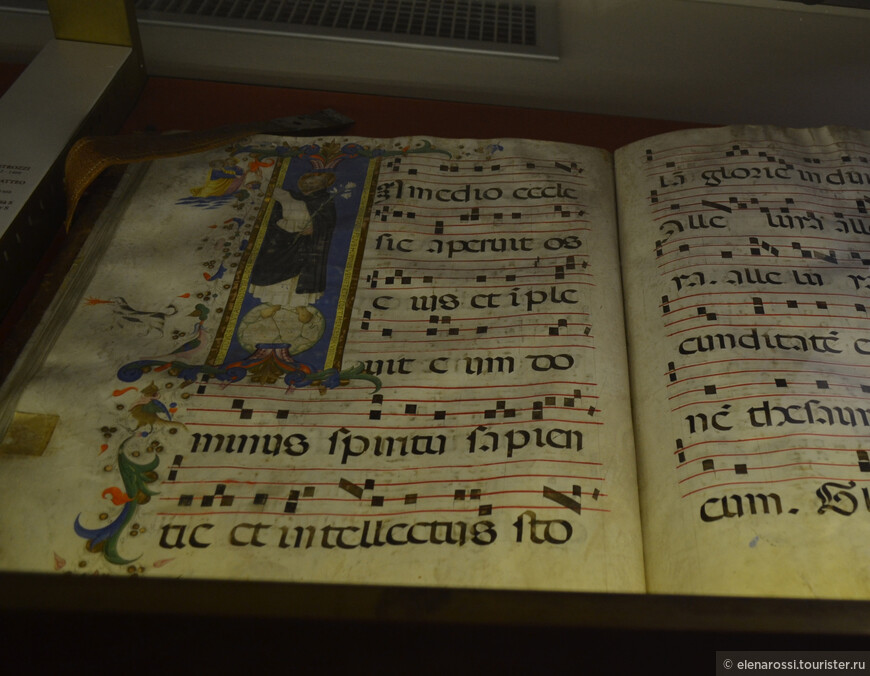 IN medio eccle
sie aperuit os
e ius et īple
uit e um do
minus spiritu sapien
tie et intellectus sto
lā glorie in
Alle luia alle
ia. alle lu
cunditatē
nē thesaur
cum.
© elenarossi.tourister.ru